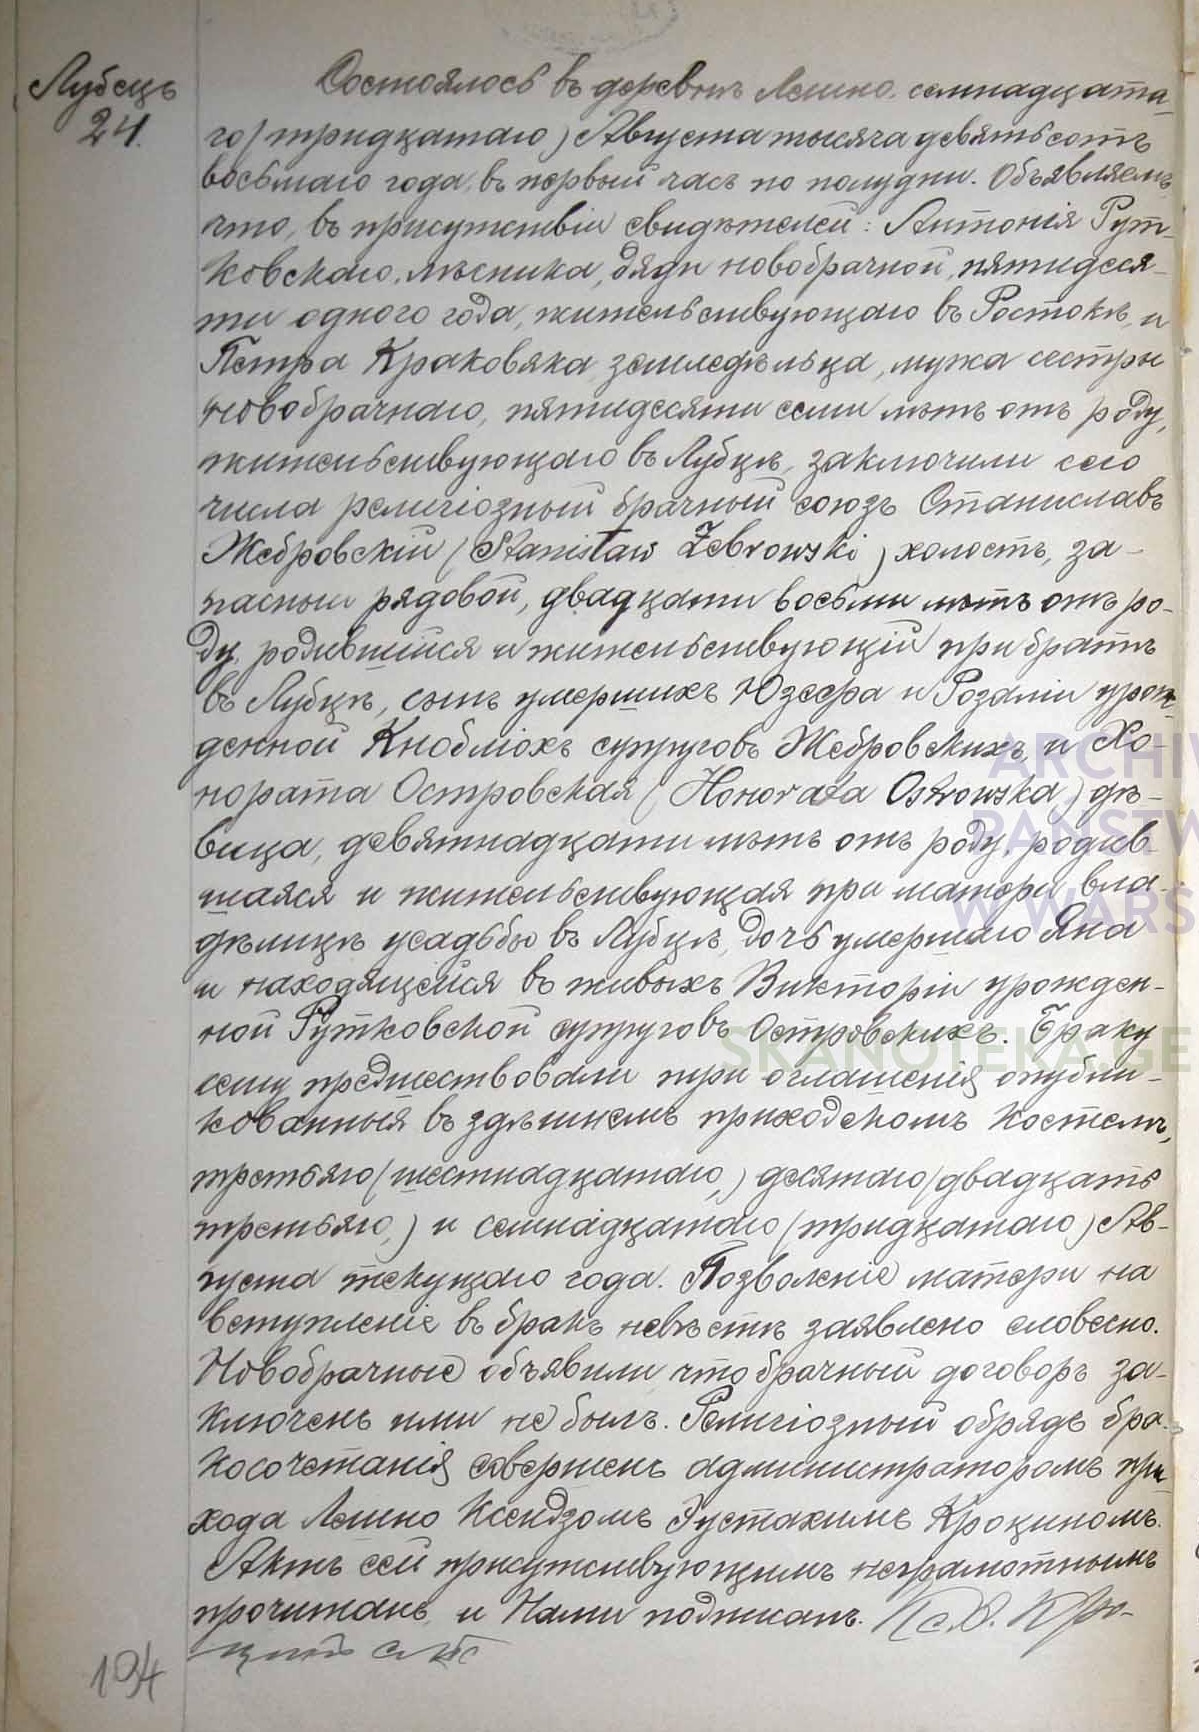 Лубецъ
24.
Состоялось въ деревнѣ Лешно семнадцата-
го (тридцатаго) Августа тысяча девятьсотъ
восьмаго года, въ первый часъ по полудни. Объявляемъ,
что, въ присутствіи свидѣтелей: Антонія Рут-
ковскаго, лѣсника, дяди новобрачной, пятидеся-
ти одного года, жительствующаго въ Ростокѣ, и
Петра Краковяка, земледѣльца, мужа сестры
новобрачнаго, пятидесяти семи лѣтъ отъ роду,
жительствующаго въ Лубцѣ, заключили сего
числа религіозный брачный союзъ Станиславъ
Жебровскій (Stanisław Żebrowski) холостъ, за-
пасный рядовой, двадцати восьми лѣтъ отъ ро-
ду, родившійся и жительствующій при братѣ
въ Лубцѣ, сынъ умершихъ Юзефа и Розаліи урож-
денной Кноблюхъ супруговъ Жебровскихъ, и Хо-
нората Островская (Honorata Ostrowska) дѣ-
вица, девятнадцати лѣтъ отъ роду, родив-
шаяся и жительствующая при матери вла-
дѣлицѣ усадьбы въ Лубцѣ, дочь умершаго Яна
и находящейся въ живыхъ Викторіи урожден-
ной Рутковской супруговъ Островскихъ. Браку
сему предшествовали три оглашенія опубли-
кованныя въ здѣшнемъ приходскомъ костелѣ,
третьяго (шестнадцатаго,) десятаго (двадцать
третьяго,) и семнадцатаго (тридцатаго) Ав-
густа текущаго года. Позволеніе матери на
вступленіе въ бракъ невѣстѣ заявлено словесно.
Новобрачные объявили, что брачный договоръ за-
ключенъ ими не былъ. Религіозный обрядъ бра-
косочетанія совершенъ администраторомъ при-
хода Лешно Ксендзомъ Густахимъ Кроциномъ.
Актъ сей присутствующимъ неграмотнымъ
прочитанъ и Нами подписанъ. Кс. Кро-
194
ARCHIW
PAŃSTW
W WARS
SKANOTEKA.GE